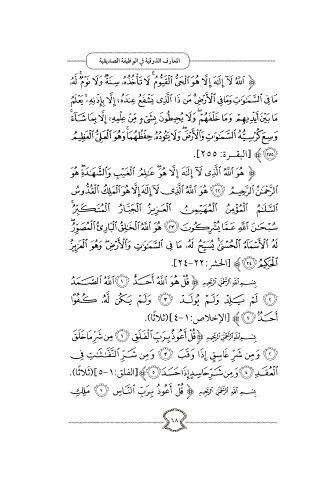 المعارف الذوقية في الوظيفة الصديقية
﴿ ٱللَّهُ لَآ إِلَٰهَ إِلَّا هُوَ ٱلْحَىُّ ٱلْقَيُّومُ ۚ لَا تَأْخُذُهُۥ سِنَةٌ وَلَا نَوْمٌ ۚ لَّهُۥ
مَا فِى ٱلسَّمَٰوَٰتِ وَمَا فِى ٱلْأَرْضِ ۗ مَن ذَا ٱلَّذِى يَشْفَعُ عِندَهُۥٓ إِلَّا بِإِذْنِهِۦ ۚ يَعْلَمُ
مَا بَيْنَ أَيْدِيهِمْ وَمَا خَلْفَهُمْ ۖ وَلَا يُحِيطُونَ بِشَىْءٍ مِّنْ عِلْمِهِۦٓ إِلَّا بِمَا شَآءَ ۚ
وَسِعَ كُرْسِيُّهُ ٱلسَّمَٰوَٰتِ وَٱلْأَرْضَ ۖ وَلَا يَـُٔودُهُۥ حِفْظُهُمَا ۚ وَهُوَ ٱلْعَلِىُّ ٱلْعَظِيمُ
٢٥٥ ﴾ [البقرة: ٢٥٥].
﴿ هُوَ ٱللَّهُ ٱلَّذِى لَآ إِلَٰهَ إِلَّا هُوَ ۖ عَٰلِمُ ٱلْغَيْبِ وَٱلشَّهَٰدَةِ ۖ هُوَ
ٱلرَّحْمَٰنُ ٱلرَّحِيمُ ٢٢ هُوَ ٱللَّهُ ٱلَّذِى لَآ إِلَٰهَ إِلَّا هُوَ ٱلْمَلِكُ ٱلْقُدُّوسُ
ٱلسَّلَٰمُ ٱلْمُؤْمِنُ ٱلْمُهَيْمِنُ ٱلْعَزِيزُ ٱلْجَبَّارُ ٱلْمُتَكَبِّرُ ۚ
سُبْحَٰنَ ٱللَّهِ عَمَّا يُشْرِكُونَ ٢٣ هُوَ ٱللَّهُ ٱلْخَٰلِقُ ٱلْبَارِئُ ٱلْمُصَوِّرُ ۖ
لَهُ ٱلْأَسْمَآءُ ٱلْحُسْنَىٰ ۚ يُسَبِّحُ لَهُۥ مَا فِى ٱلسَّمَٰوَٰتِ وَٱلْأَرْضِ ۖ وَهُوَ ٱلْعَزِيزُ
ٱلْحَكِيمُ ٢٤ ﴾ [الحشر: ٢٢-٢٤].
بِسْمِ ٱللَّهِ ٱلرَّحْمَٰنِ ٱلرَّحِيمِ ﴿ قُلْ هُوَ ٱللَّهُ أَحَدٌ ١ ٱللَّهُ ٱلصَّمَدُ
٢ لَمْ يَلِدْ وَلَمْ يُولَدْ ٣ وَلَمْ يَكُن لَّهُۥ كُفُوًا
أَحَدٌۢ ٤ ﴾ [الإخلاص: ١-٤] (ثلاثًا).
بِسْمِ ٱللَّهِ ٱلرَّحْمَٰنِ ٱلرَّحِيمِ ﴿ قُلْ أَعُوذُ بِرَبِّ ٱلْفَلَقِ ١ مِن شَرِّ مَا خَلَقَ
٢ وَمِن شَرِّ غَاسِقٍ إِذَا وَقَبَ ٣ وَمِن شَرِّ ٱلنَّفَّٰثَٰتِ فِى
ٱلْعُقَدِ ٤ وَمِن شَرِّ حَاسِدٍ إِذَا حَسَدَ ٥ ﴾ [الفلق: ١-٥] (ثلاثًا).
بِسْمِ ٱللَّهِ ٱلرَّحْمَٰنِ ٱلرَّحِيمِ ﴿ قُلْ أَعُوذُ بِرَبِّ ٱلنَّاسِ ١ مَلِكِ
٦٨